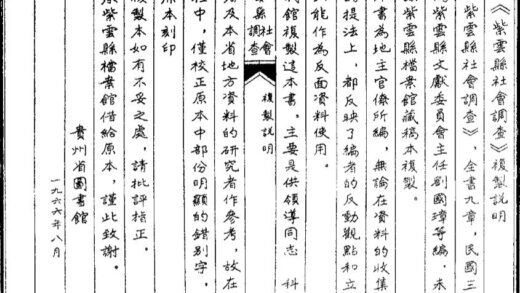 《紫雲縣社會調查》複製說明
紫雲縣社會調查》,全書九章,民國三
紫雲縣文獻委員會主任劉國璋等編,未
紫雲縣檔案館藏稿本複製。
書為地主官僚所編,無論在資料的收集
的提法上,都反映了編者的反動觀點和立
能作為反面資料使用。
館複製這本書,主要是供領導同志 科
縣社會調查 複製說明
及本省地方資料的研究者作參考,故在
程中,僅校正原本中部份明顯的錯別字,
原本刻印
複製本如有不妥之處,請批評指正。
紫雲縣檔案館借給原本,謹此致謝。
貴州省圖書館
一九六六年八月